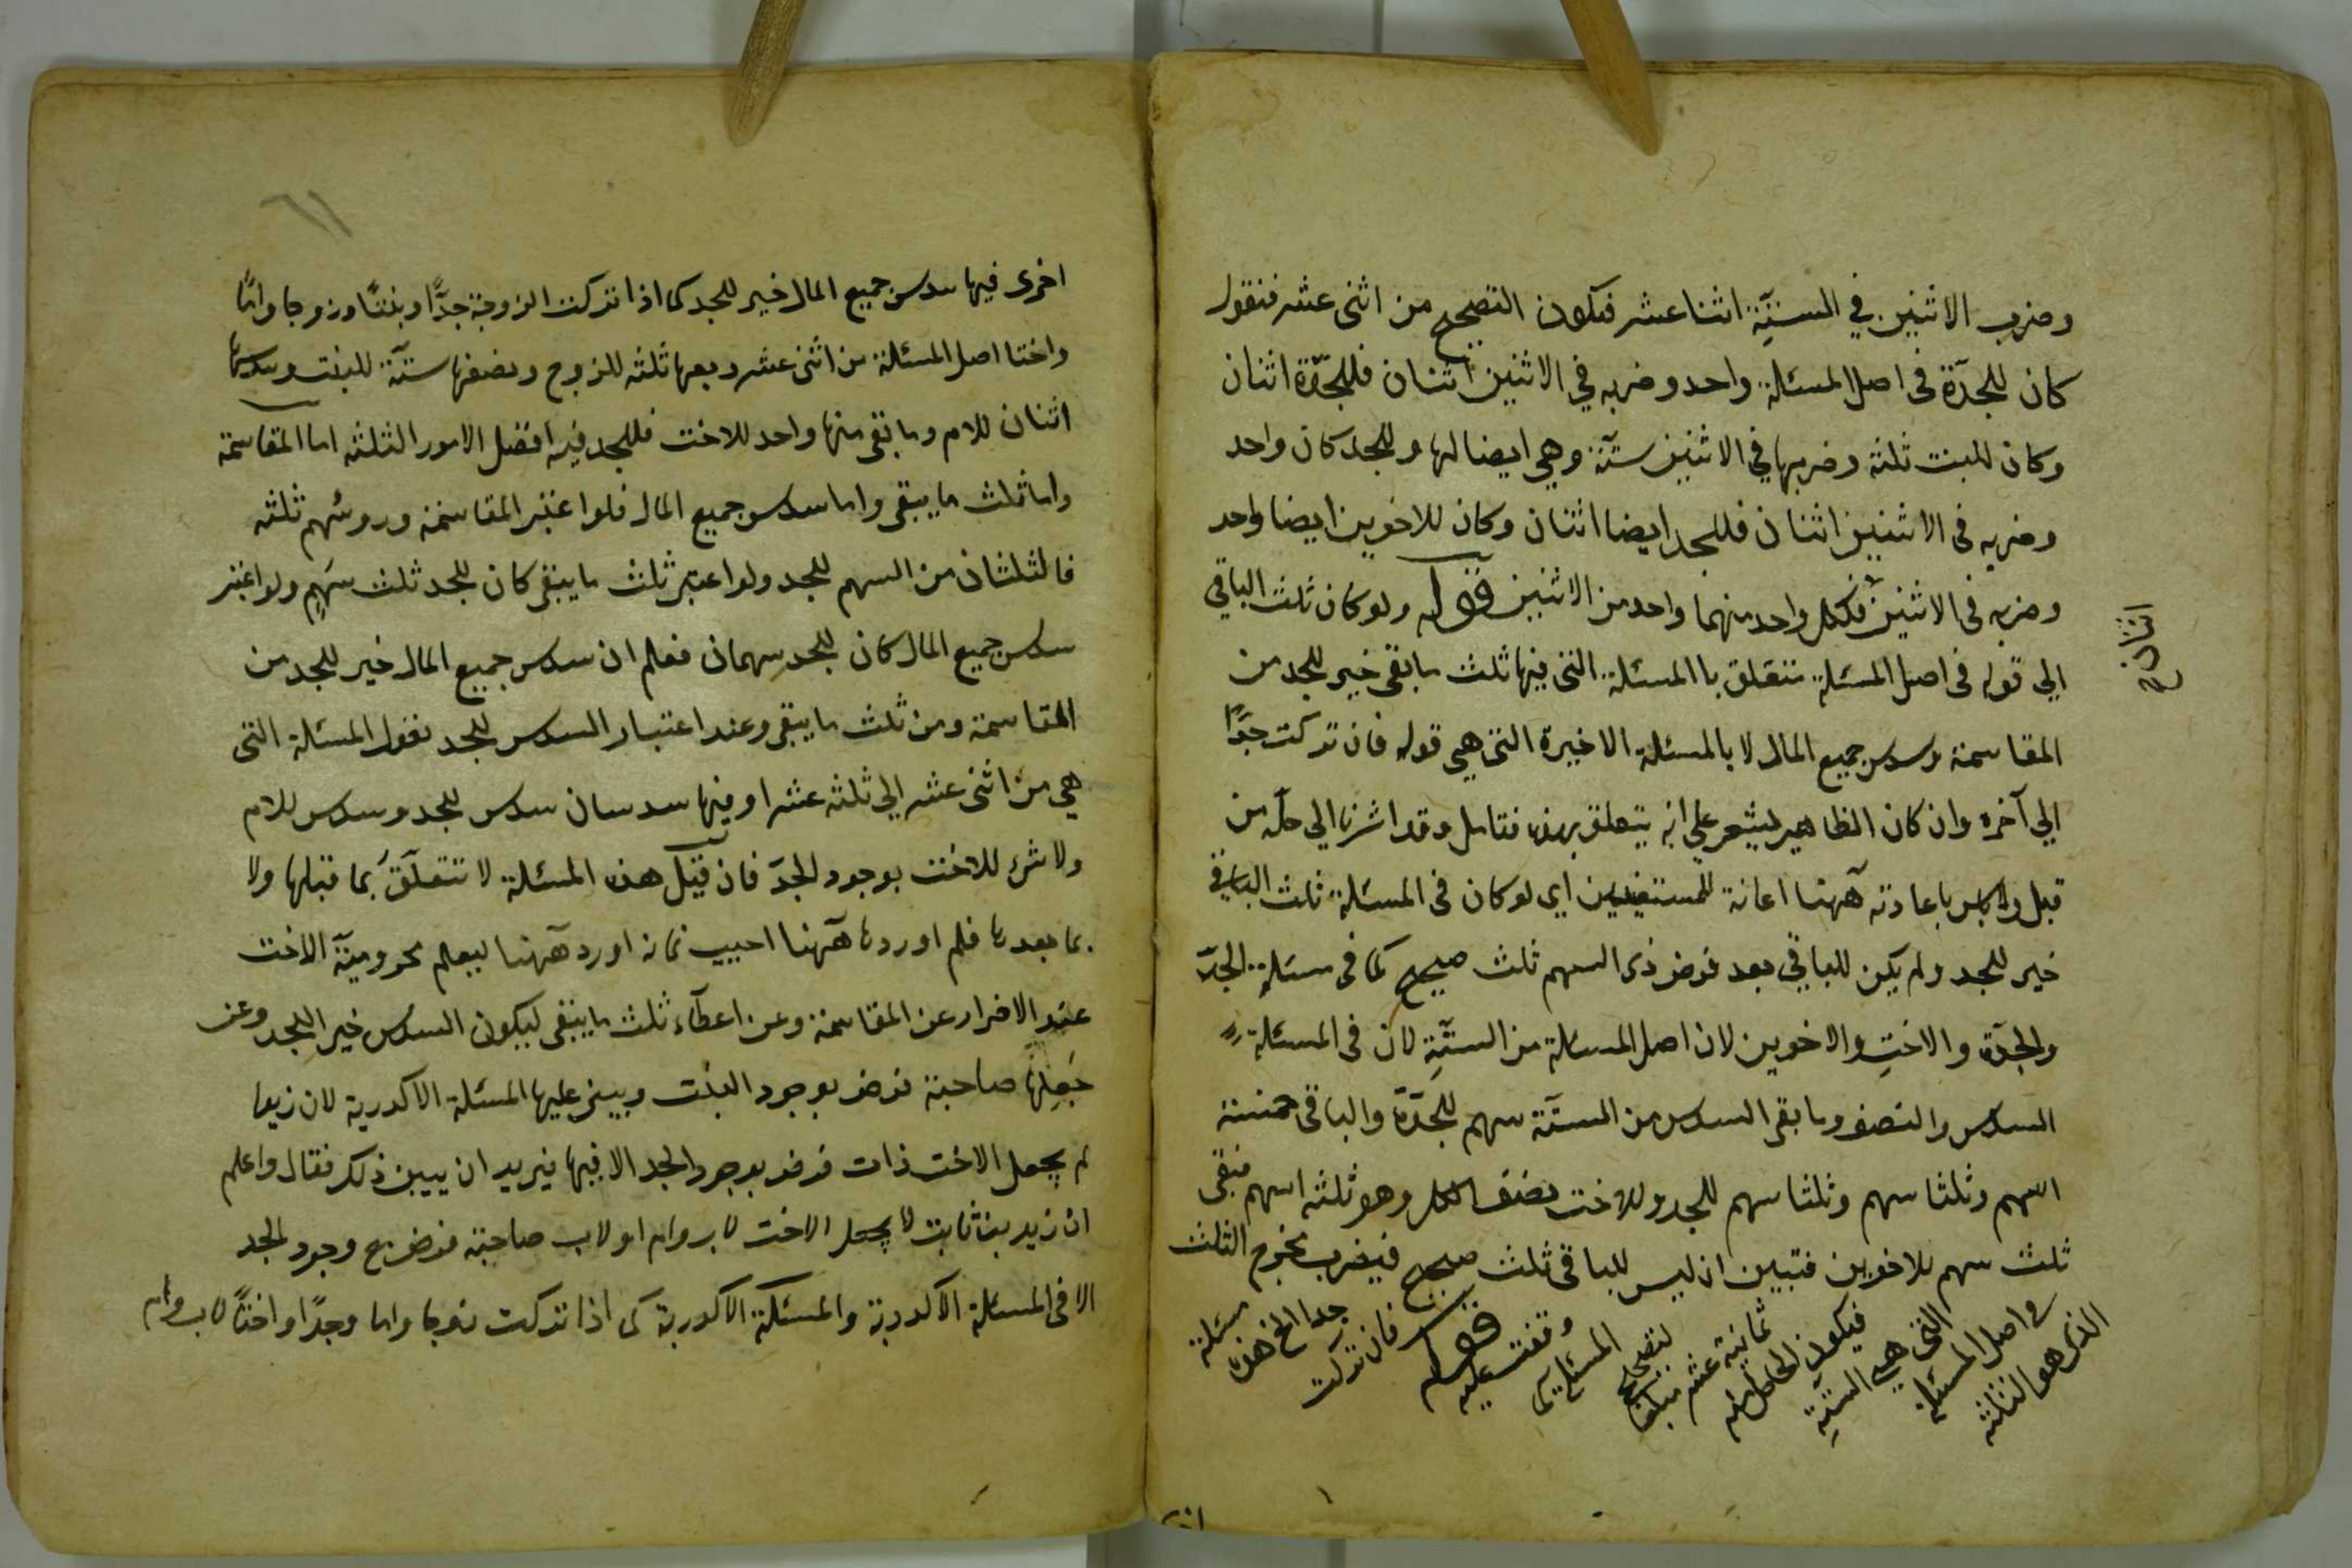 وضرب الاثنين في الستة اثنا عشر فيكون التصحيح من اثنى عشر فنقول
كان للجدّة فى اصل المسئلة واحد وضربه في الاثنين اثنان فللجدّة اثنان
وكان للبنت ثلثة وضربها في الاثنين ستة وهي ايضا لها وللجد كان واحد
وضربه فى الاثنين اثنان فللجد ايضا اثنان وكان للاخوين ايضا واحد
وضربه فى الاثنين فلكل واحد منهما واحد من الاثنين قوله ولو كان ثلث الباقي
اثنان
الي قوله فى اصل المسئلة تتعلق باالمسئلة التى فيها ثلث ما بقى خير للجد من
المقاسمة وسدس جميع المال لا بالمسئلة الاخيرة التى هي قوله فان تركت جدّا
الي آخره وان كان الظاهر يشعر علي انه يتعلق بهذه فتامل وقد اشرنا الي حله من
قبل ولا باس باعادته ههنا اعانة للمستفيدين اى لو كان فى المسئلة ثلث الباقي
خير للجد ولم يكن للباقي بعد فرض ذى السهم ثلث صحيح كما فى مسئلة الجدّ
والجدّة والاختِ والاخوين لان اصل المسئلة من الستّةِ لان فى المسئلة
السدس والنصف وما بقى السدس من الستّة سهم للجدّة والباقى خمسة
اسهم وثلثا سهم وثلثا سهم للجد وللاخت نصف الكل وهو ثلثة اسهم فبقى
ثلث سهم للاخوين فتبين ان ليس للباقى ثلث صحيح فيضرب مخرج الثلث
الذى هو الثلثة
فى اصل المسئلة
التى هي الستّةِ
فيكون الحاصل منه
ثمانية عشر مبلغا
لتصحيح
المسئلة كما
وقفت عليه
قوله
فان تركت
جدا الخ هذه
مسئلة
اخرى
٦١
اخرى فيها سدس جميع المال خير للجد كما اذا تركت الزوجة جدًّا وبنتًا وزوجا وامًّا
واختا اصل المسئلة من اثنى عشر ربعها ثلثه للزوج ونصفها ستّة للبنت وسدسها
اثنان للام وما بقى منها واحد للاخت فللجد فيه افضل الامور الثلثه اما المقاسمة
واما ثلث ما يبقى واما سدس جميع المال فلو اعتبر المقاسمة ورؤسهم ثلثه
فالثلثان من السهم للجد ولو اعتبر ثلث ما يبقى كان للجد ثلث سهمٍ ولو اعتبر
سدس جميع المال كان للجد سهمان فعلم ان سدس جميع المال خير للجد من
المقاسمة ومن ثلث ما يبقى وعند اعتبار السدس للجد تعول المسئلة التى
هي من اثنى عشر الي ثلثه عشر اذ فيها سدسان سدس للجد وسدس للام
ولا شئ للاخت بوجود الجدّ فان قيل هذه المسئلة لا تتعلّق بما قبلها ولا
بما بعدها فلم اوردها ههنا اجيب بانه اورد ههنا ليعلم محروميّة الاخت
عند الاضرار عن المقاسمة وعن اعطآء ثلث ما يبقى ليكون السدس خير اللجد وعن
جَعلِها صاحبة فرض بوجود البنت ويبنى عليها المسئلة الاكدرية لان زيدا
لم يجعل الاخت ذات فرض بوجود الجد الا فيها فيريد ان يبين ذلك فقال واعلم
ان زيد بن ثابت لا يجعل الاخت لاب وام او لاب صاحبة فرض مع وجود الجد
الا فى المسئلة الاكدرية والمسئلة الاكدرية كما اذا تركت زوجا واما وجدًا واختًا لاب وام